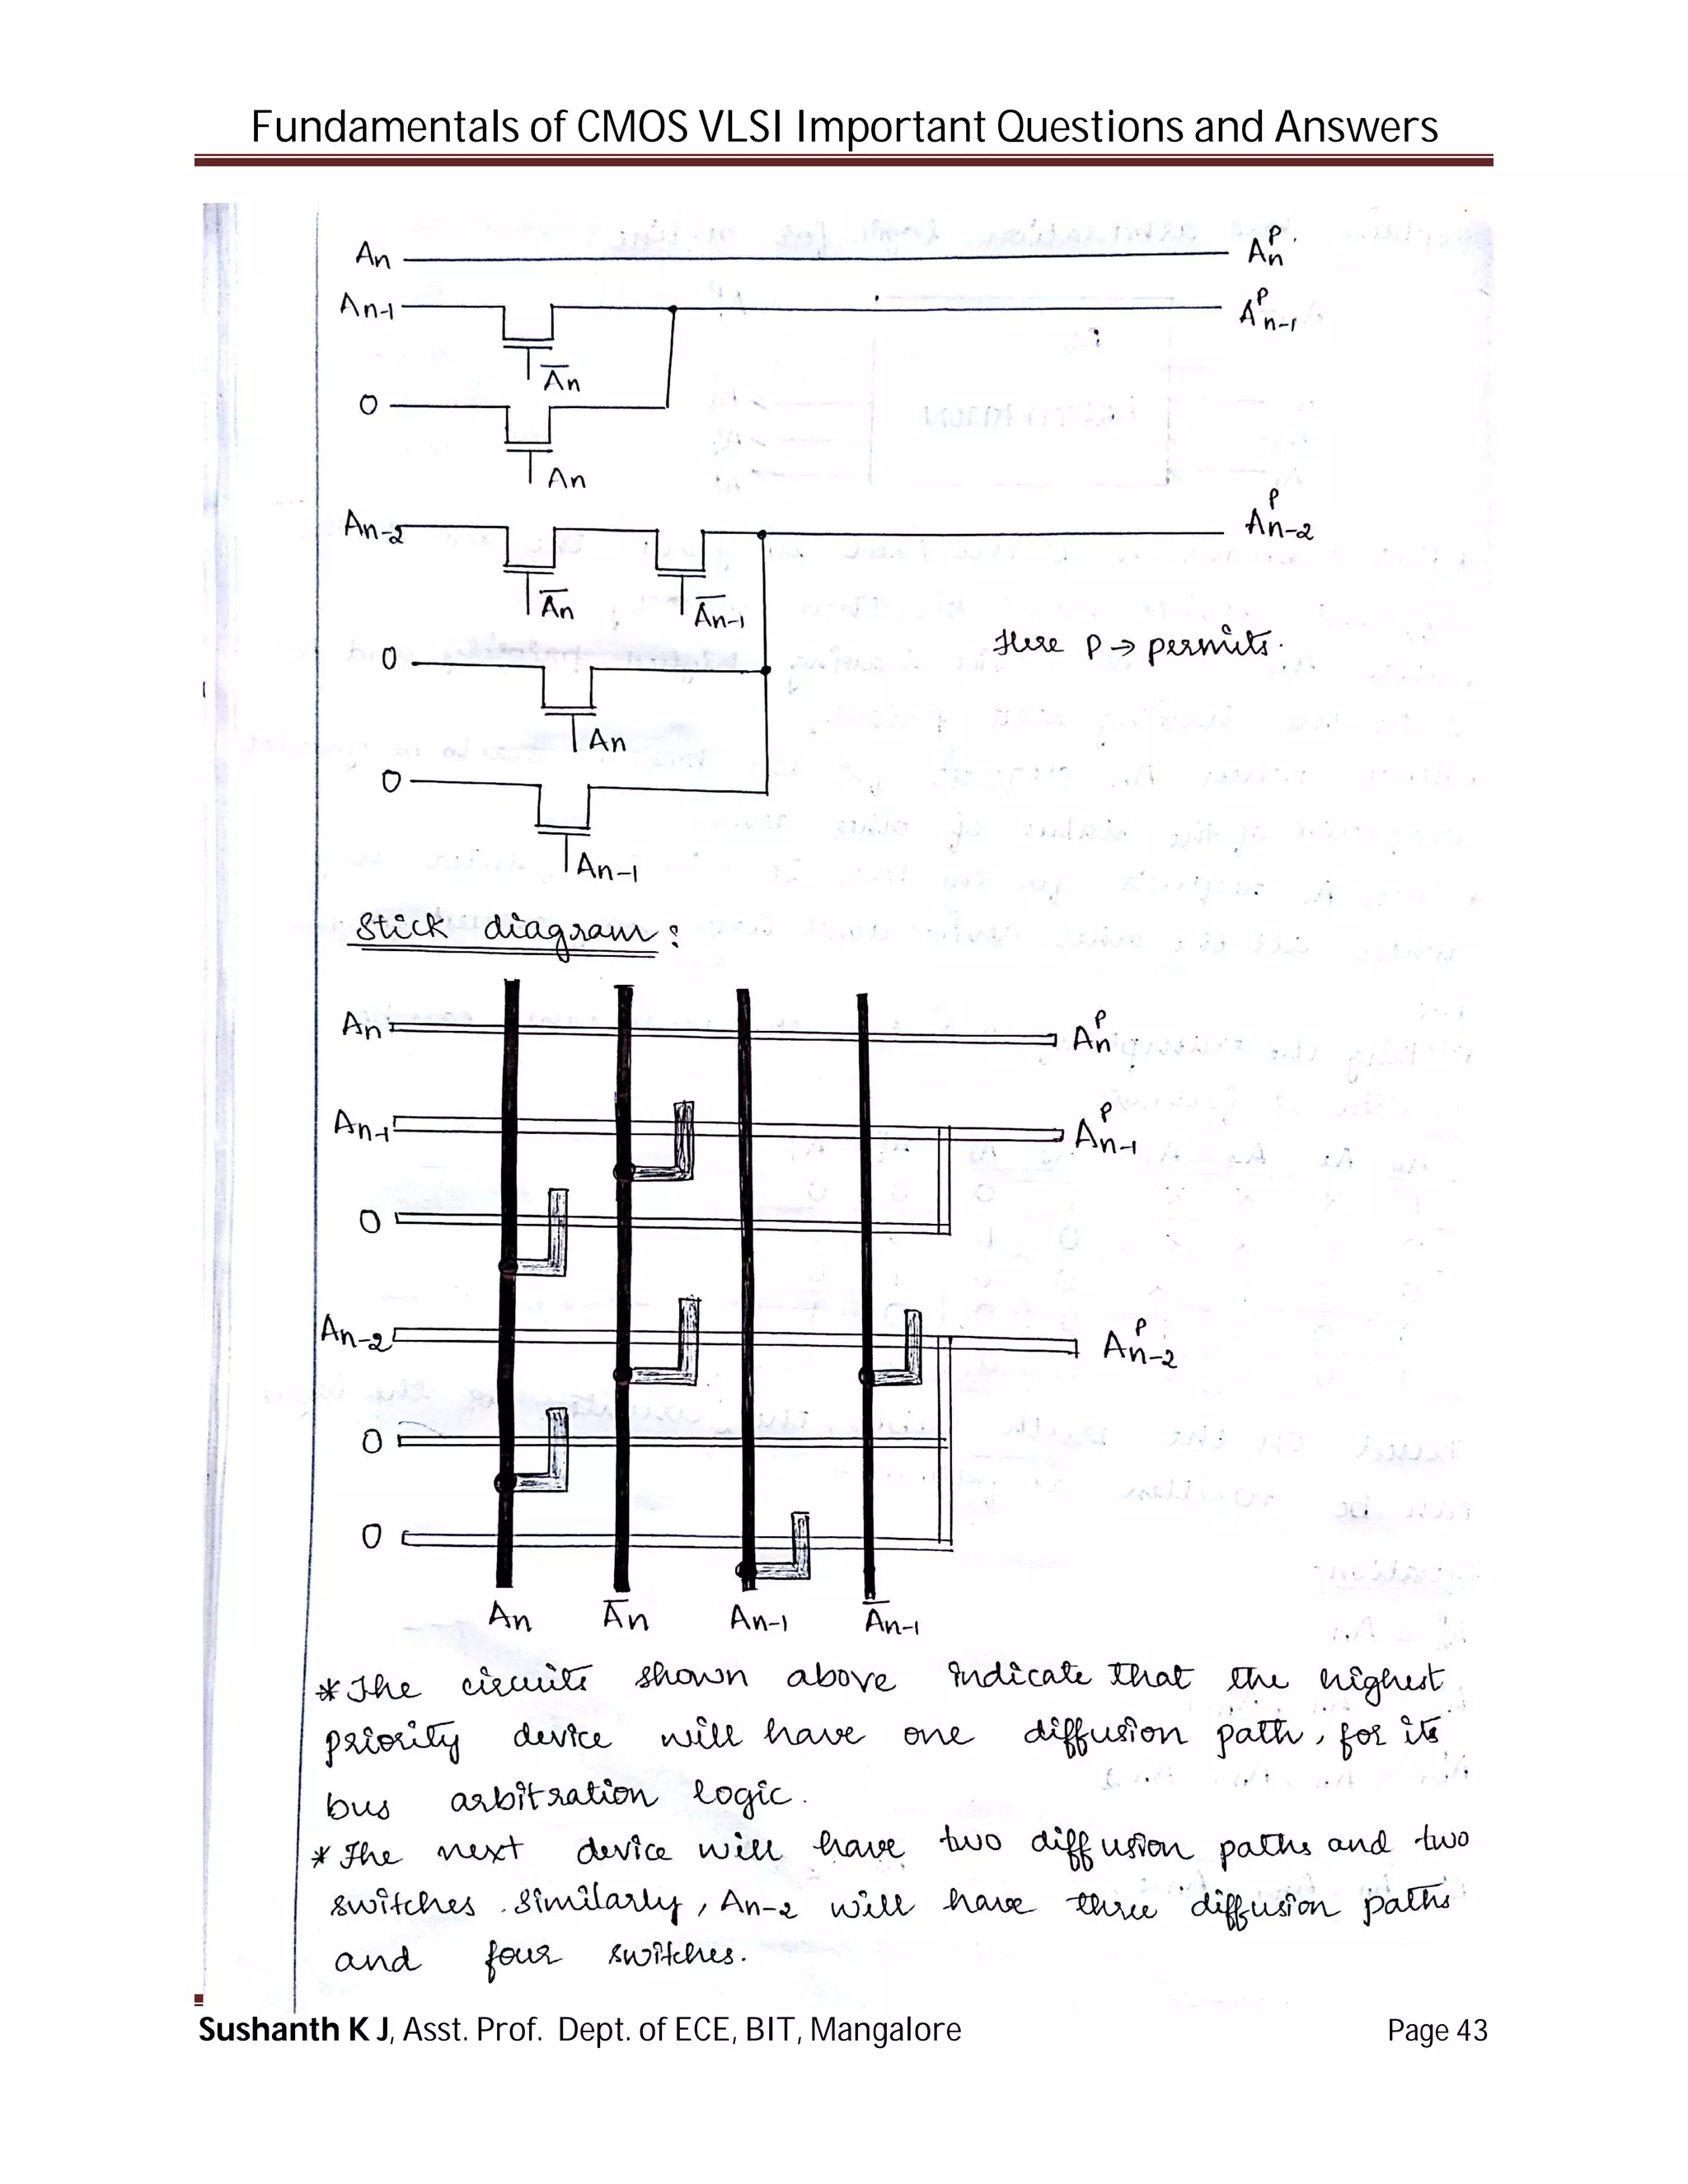 Fundamentals of CMOS VLSI Important Questions and Answers
An
An^P
An-1
A^P n-1
A̅n
0
An
An-2
An-2^P
A̅n
A̅n-1
Here P → permits.
0
An
0
An-1
Stick diagram :
An
An^P
An-1
An-1^P
0
An-2
An-2^P
0
0
An A̅n An-1 A̅n-1
* The circuits shown above indicate that the highest
priority device will have one diffusion path, for its
bus arbitration logic.
* The next device will have two diffusion paths and two
switches. Similarly, An-2 will have three diffusion paths
and four switches.
Sushanth K J, Asst. Prof. Dept. of ECE, BIT, Mangalore Page 43